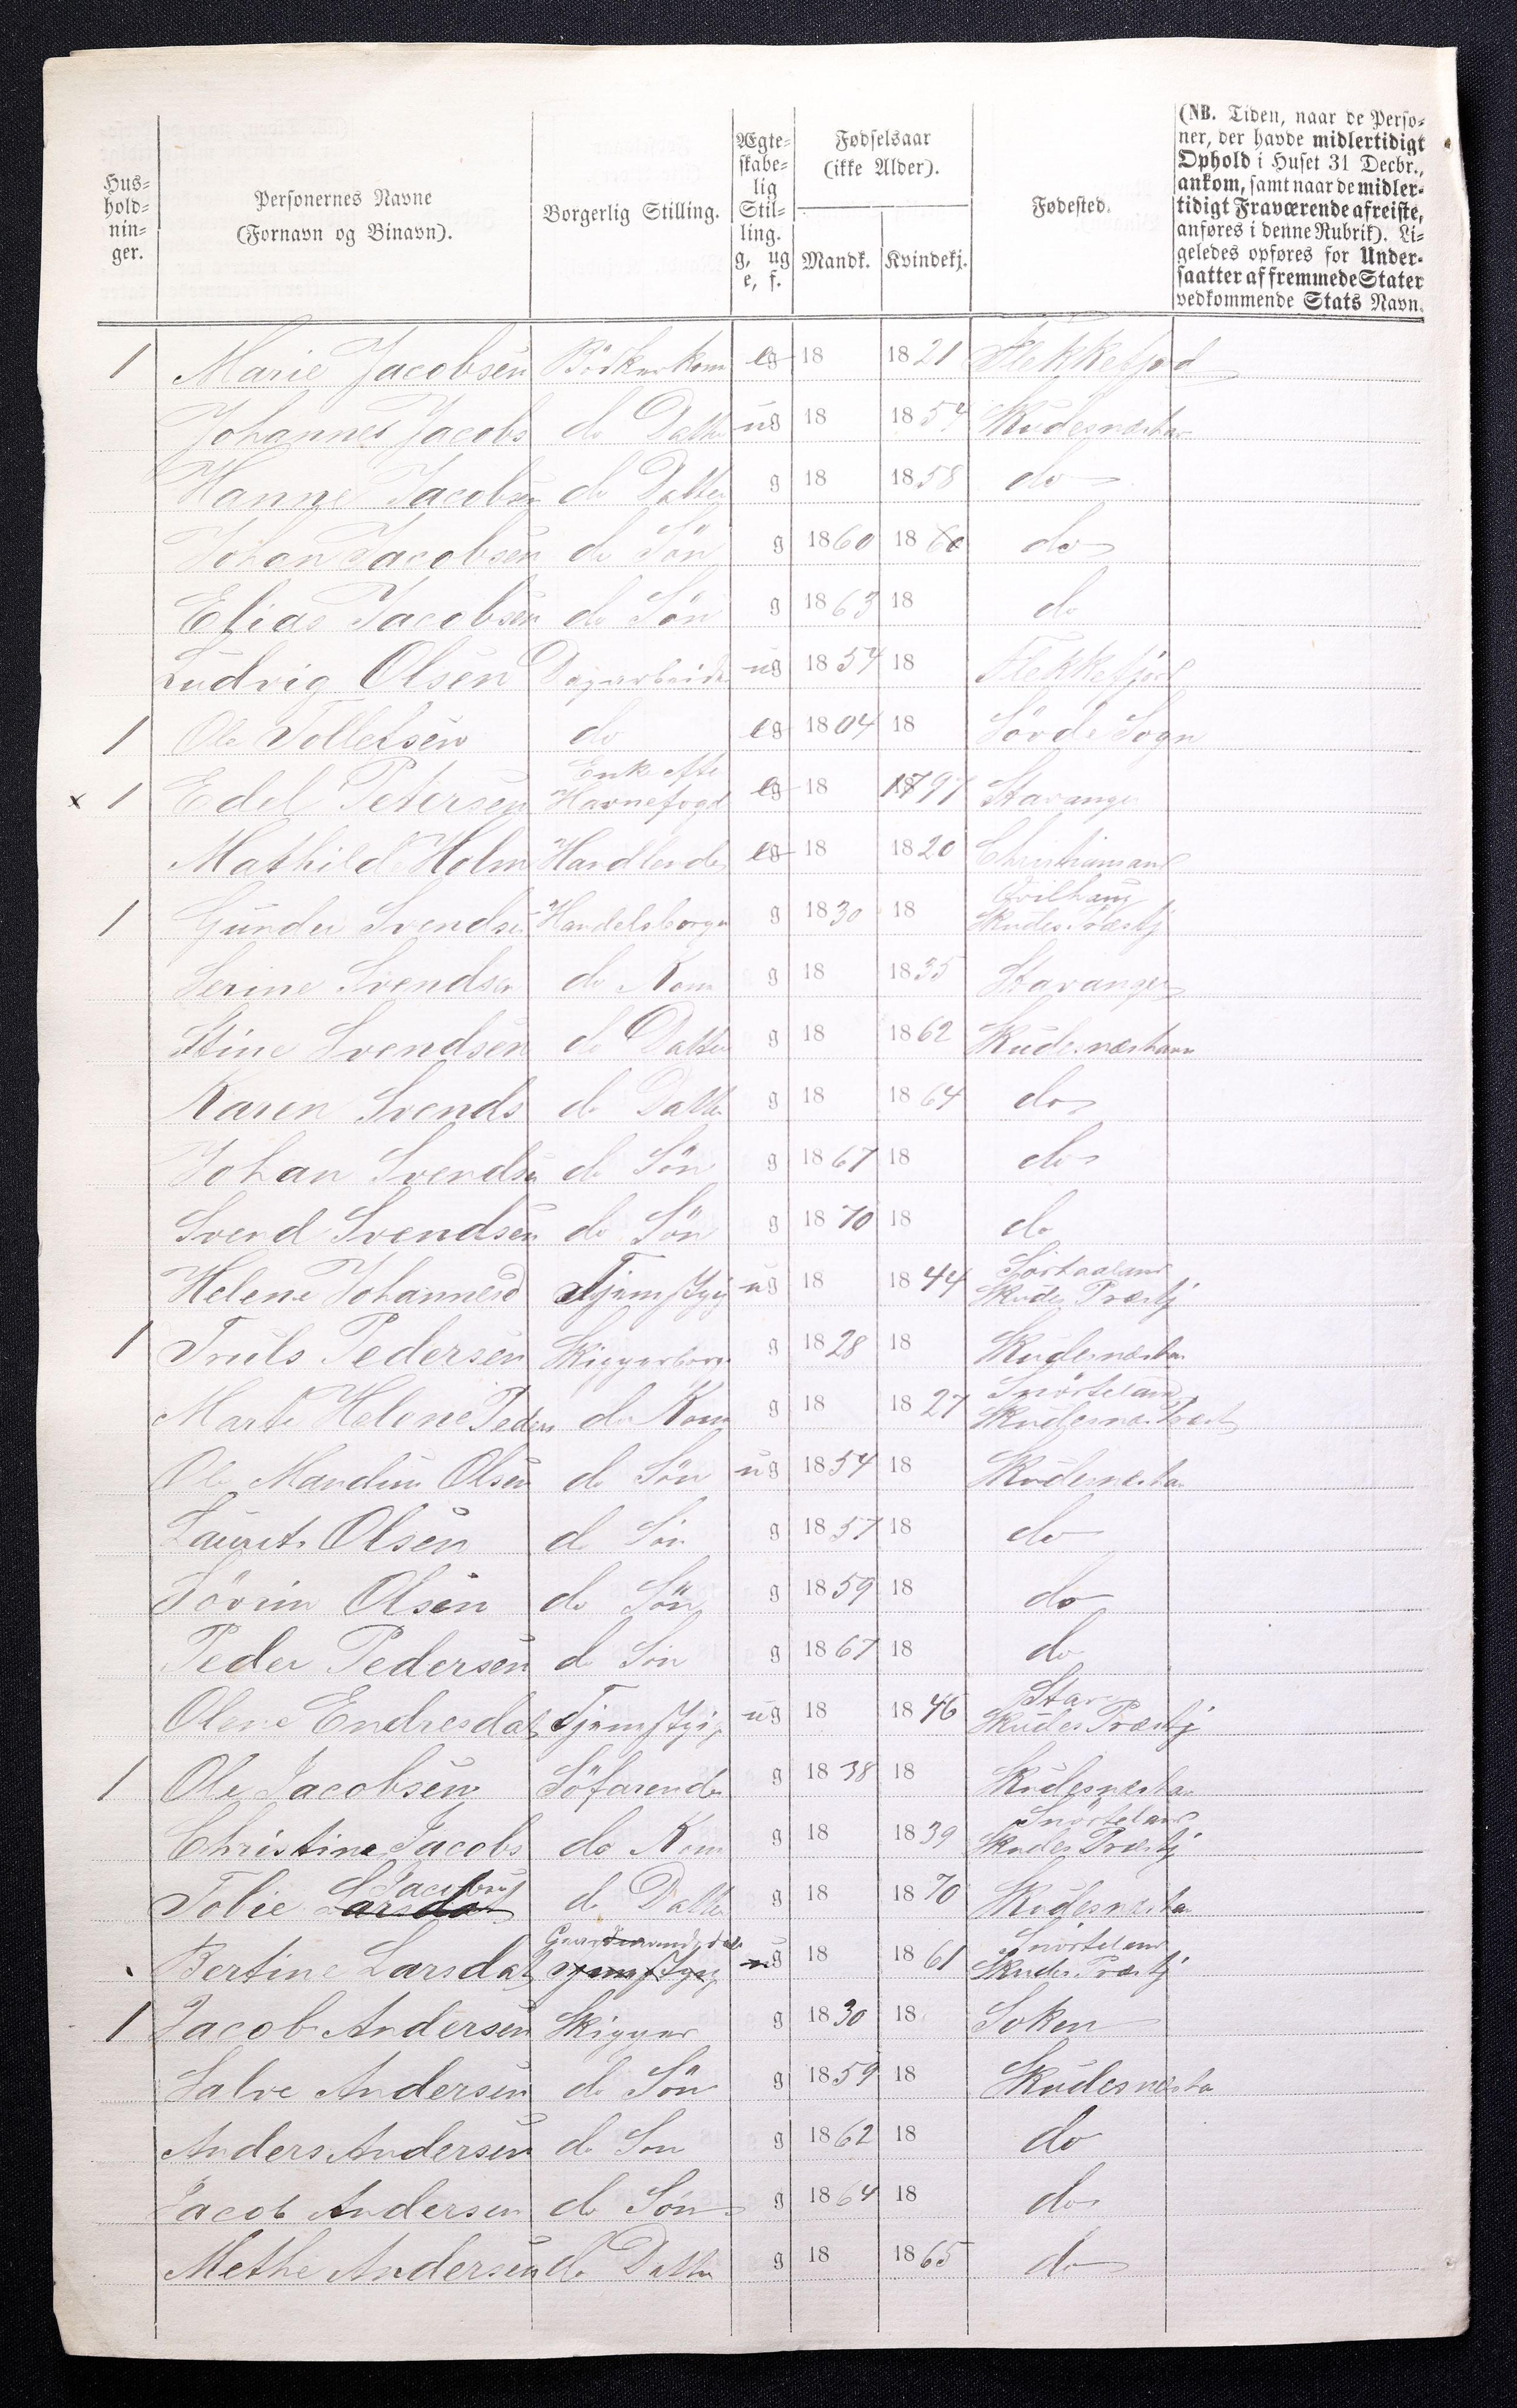 Hus-
hold-
nin-
ger.
Personernes Navne
(Fornavn og Binavn).
Borgerlig Stilling.
Ægte-
skabe-
lig
Stil-
ling.
g, ug
e, f.
Fødselsaar
(ikke Alder).
Mandk. Kvindekj.
Fødested.
(NB. Tiden, naar de Perso-
ner, der havde midlertidigt
Ophold i Huset 31 Decbr.,
ankom, samt naar de midler-
tidigt Fraværende afreiste,
anføres i denne Rubrik). Li-
geledes opføres for Under-
saatter af fremmede Stater
vedkommende Stats Navn.
1 Marie Jacobsen Bödkerkone eg 18 1821 Flekkefjord
Johannes Jacobs do Datter ug 18 1854 Skudesneshav
Hanne Jacobsen do Datter g 18 1858 do
Johan Jacobsen do Sön g 1860 1860 do
Elias Jacobsen do Sön g 1863 18 do
Ludvig Olsen Dagarbeider ug 1854 18 Flekkefjord
1 Ole Tollefsen do eg 1804 18 Sörde Sogn
Enke efte
x 1 Edel Petersen Havnefogd eg 18 1797 Stavanger
Mathilde Holm Handlende eg 18 1820 Christiansand
Qvilhaug
1 Gunder Svendsen Handelsborger g 1830 18 Skudes Præstgj
Serine Svendsen do Kone g 18 1835 Stavanger
Stine Svendsen do Datter g 18 1862 Skudesneshavn
Karen Svends do Datter g 18 1864 do
Johan Svendsen do Sön g 1867 18 do
Svend Svendsen do Sön g 1870 18 do
Helene Johannesd Tjenestpige ug 18 1844 Skudes Præstgj
1 Truls Pedersen Skipperborger g 1828 18 Skudesneshav
Snörteland
Marte Helene Peders do Kone g 18 1827 Skudesnes Præst
Ole Mandius Olsen do Sön ug 1854 18 Skudesneshav
Laurits Olsen do Sön g 1857 18 do
Olsen do Sön g 1859 18 do
Peder Pedersen do Sön g 1867 18 do
Stav
Olene Endresdat Tjenestpige ug 18 1846 Skudes Præstgj
1 Ole Jacobsen Söfarende g 1838 18 Skudesneshav
Snörteland
Christine Jacobs do Kone g 18 1839 Skudes Præstgj
Jacobsen
Tolie Larsdat do Datter g 18 1870 Skudesneshav
Gaardmandsdat Snörteland
Bertine Larsdat Tjenestpige ug 18 1861 Skudes Præstgj
1 Jacob Andersen Skipper g 1830 18 Soken
Salve Andersen do Sön g 1859 18 Skudesnesha
Anders Andersen do Sön g 1862 18 do
Jacob Andersen do Sön g 1864 18 do
Methe Andersen do Datter g 18 1865 do